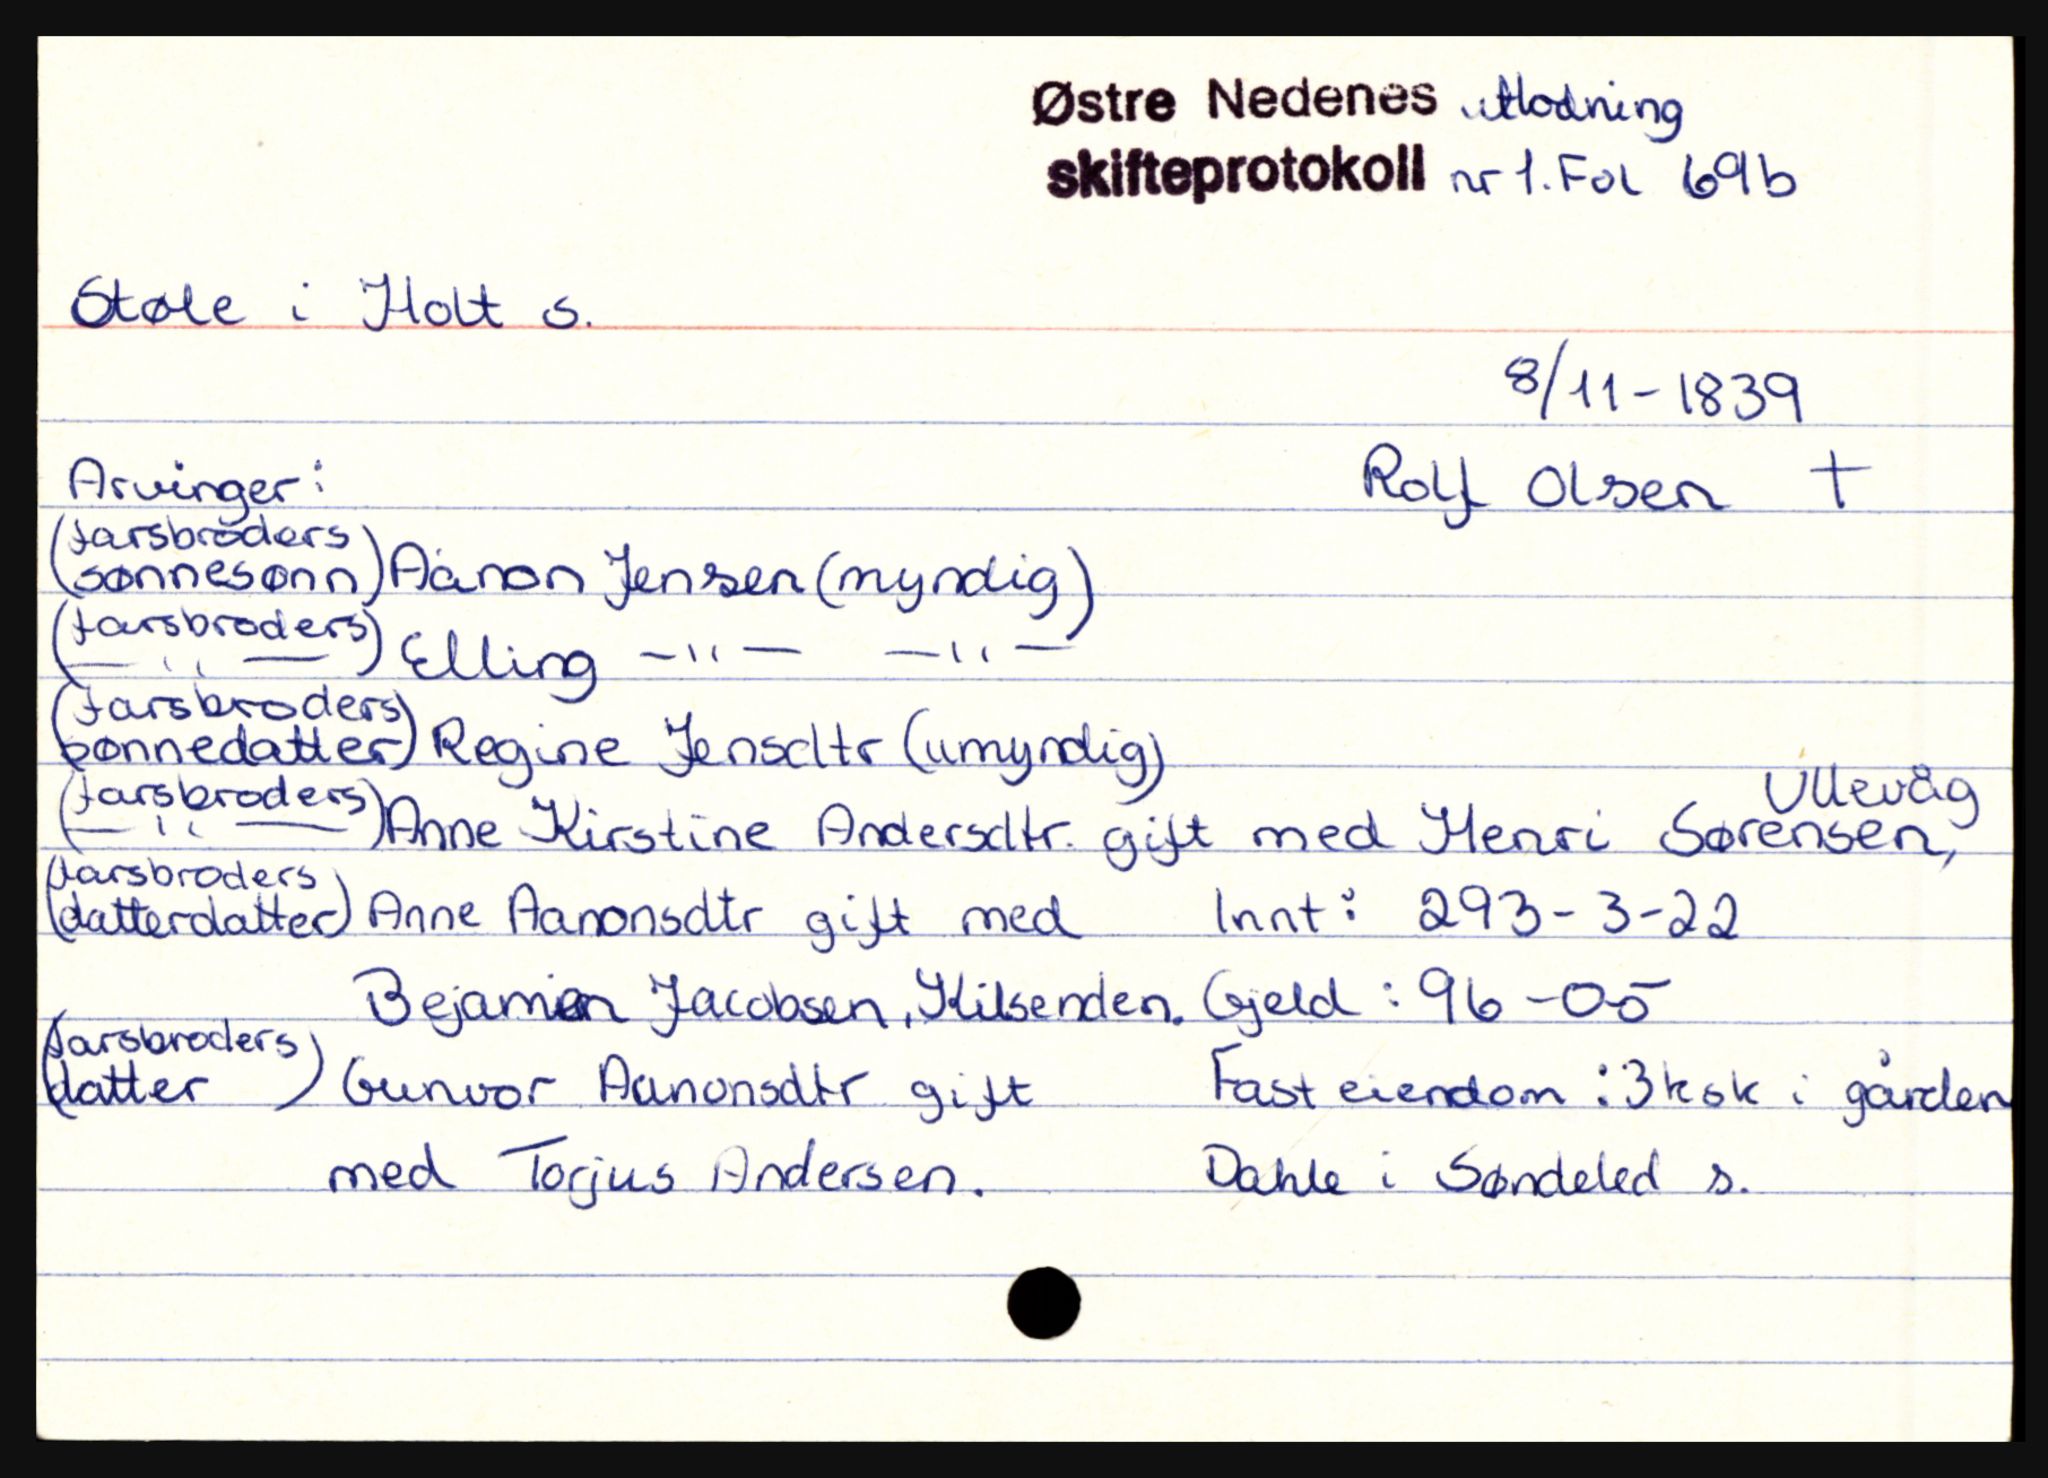 Østre Nedenes utlodning
skifteprotokoll nr 1. Fol 69b
Støle i Holt s.
8/11-1839
Arvinger: Rolf Olsen †
(farsbroders
sønnesønn) Aanon Jensen (myndig)
(farsbroders)
— '' — ) Elling — '' — — '' —
(farsbroders
sønnedatter) Regine Jensdtr (umyndig)
(farsbroders) Ullevåg
— '' — ) Anne Kirstine Andersdtr. gift med Henri Sørensen,
(farsbroders
datterdatter) Anne Aanonsdtr gift med Innt: 293-3-22
Bejamin Jacobsen, Kilsenden. Gjeld: 96-0-5
(farsbroders
datter) Gunvor Aanonsdtr gift Fast eiendom: 3 k sk i gården
med Torjus Andersen. Dahle i Søndeled s.